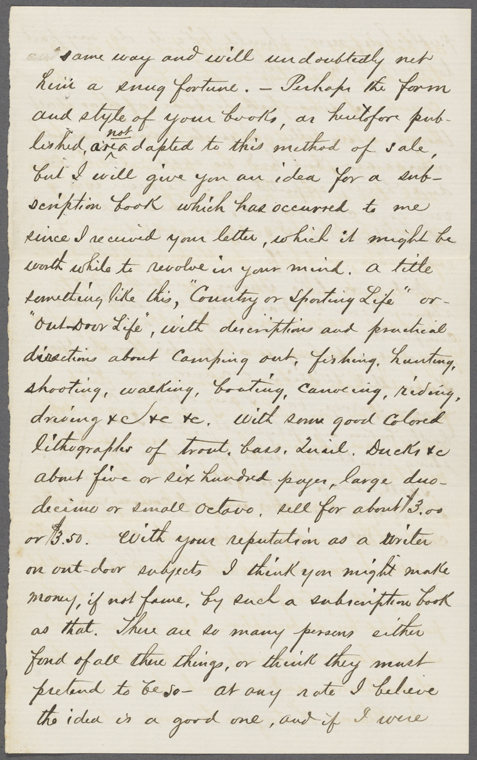 same way and will undoubtedly net
him a snug fortune. — Perhaps the form
and style of your books, as heretofore pub-
lished, are not adapted to this method of sale,
but I will give you an idea for a sub-
scription book which has occurred to me
since I received your letter, which it might be
worth while to revolve in your mind. A title
something like this, "Country or Sporting Life" or -
"Out-Door Life", with descriptions and practical
directions about Camping out, fishing, hunting,
shooting, walking, boating, canoeing, riding,
driving &c &c &c. With some good Colored
lithographs of trout, bass, Quail, Ducks &c
about five or six hundred pages, large duo-
decimo or small octavo. sell for about $3.00
or $3.50. With your reputation as a writer
on out-door subjects I think you might make
money, if not fame, by such a subscription book
as that. There are so many persons either
fond of all these things, or think they must
pretend to be so - at any rate I believe
the idea is a good one, and if I were